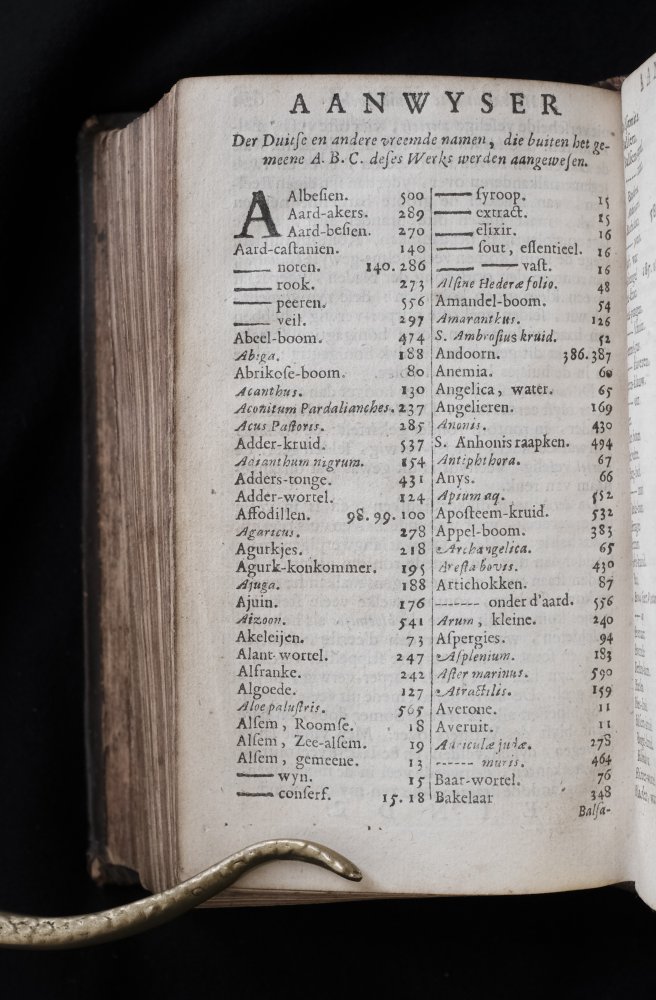 AANWYSER
Der Duitſe en andere vreemde namen, die buiten het ge-
meene A. B. C. deſes Werks werden aangeweſen.
AAlbeſien. 500
Aard-akers. 289
Aard-beſien. 270
Aard-caſtanien. 140
—— noten. 140. 286
—— rook. 273
—— peeren. 556
—— veil. 297
Abeel-boom. 474
Abiga. 188
Abrikoſe-boom. 80
Acanthus. 130
Aconitum Pardalianches. 237
Acus Paſtoris. 285
Adder-kruid. 537
Adianthum nigrum. 154
Adders-tonge. 431
Adder-wortel. 124
Affodillen. 98. 99. 100
Agaricus. 278
Agurkjes. 218
Agurk-konkommer. 195
Ajuga. 188
Ajuin. 176
Aizoon. 541
Akeleijen. 73
Alant-wortel. 247
Alfranke. 242
Algoede. 127
Aloe paluſtris. 565
Alſem, Roomſe. 18
Alſem, Zee-alſem. 19
Alſem, gemeene. 13
—— wyn. 15
—— conſerf. 15. 18
—— ſyroop. 15
—— extract. 15
—— elixir. 16
—— ſout, eſſentieel. 16
—— —— vaſt. 16
Alſine Hederæ folio. 48
Amandel-boom. 54
Amaranthus. 126
S. Ambroſius kruid. 52
Andoorn. 386.387
Anemia. 60
Angelica, water. 65
Angelieren. 169
Anonis. 430
S. Anhonis raapken. 494
Antiphthora. 67
Anys. 66
Apium aq. 552
Apoſteem-kruid. 532
Appel-boom. 383
Archangelica. 65
Areſta bovis. 430
Artichokken. 87
------- onder d'aard. 556
Arum, kleine. 240
Aſpergies. 94
Aſplenium. 183
Aſter marinus. 590
Atractilis. 159
Averone. 11
Averuit. 11
Auriculæ judæ. 278
------ muris. 464
Baar-wortel. 76
Bakelaar 348
Balſa-